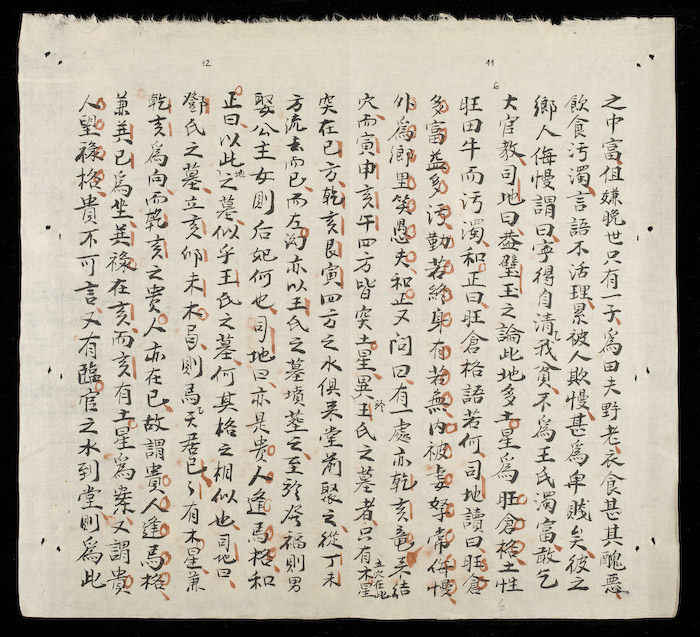 12
11
之中富但嫌晚世只有一子爲田夫野老衣食甚其醜惡
飲食污濁言語不活理累被人欺慢甚爲卑賤矣彼之
鄉人侮慢謂曰寧得自清我貧不爲王氏濁富敢乞
大官教司地曰益璧玉之論此地多土星爲旺倉格土性
旺田牛而污濁和正曰旺倉格語若何司地讀曰旺倉
多富益多污勤若終身有若無內被妻孥常侮慢
外爲鄉里笑愚夫和正又問曰有一處亦乾亥竜來結
穴而寅申亥午四方皆突土星異王氏之墓者只有木星
突在巳方乾亥艮寅四方之水俱来堂前聚之從丁未
方流去而已而左沟亦以王氏之墓墳墓之至於發福則男
娶公主女則后妃何也司地曰亦是貴人逢馬格和
正曰以此地之墓似乎王氏之墓何其格之相似也司地曰
鄧氏之墓立亥仰未木局則馬天居巳巳有木星兼
乾亥爲向而乾亥之貴人亦在巳故謂貴人逢馬格
兼巽巳爲坐巽祿在亥而亥有土星爲案又謂貴
人望祿格貴不可言又有臨官之水到堂則爲此